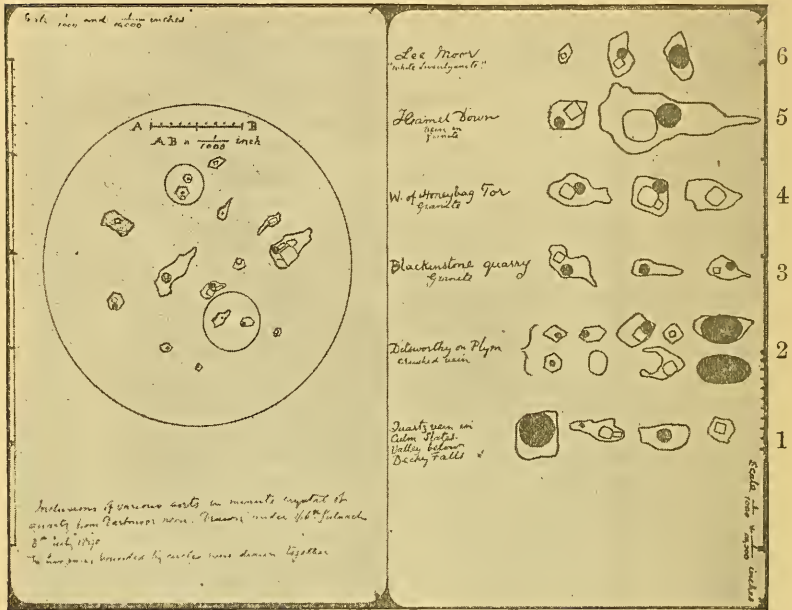 Scale 1/1000 and 1/10,000 inches
A B
AB = 1/1000 inch
Inclusions of various sorts in minute crystal of
quartz from Dartmoor . Drawn under 1/16th
8th July 18
The two pairs bounded by circles were drawn together
Lee Moor
"White "
6
Hamel Down
granite
5
W. of Honeybag Tor
Granite
4
Blackinstone quarry
Granite
3
Ditsworthy on Plym
crushed vein
2
Quartz vein in
Culm Slates.
Valley below
Becky Falls
1
Scale 1/1000 & 1/10,000 inches